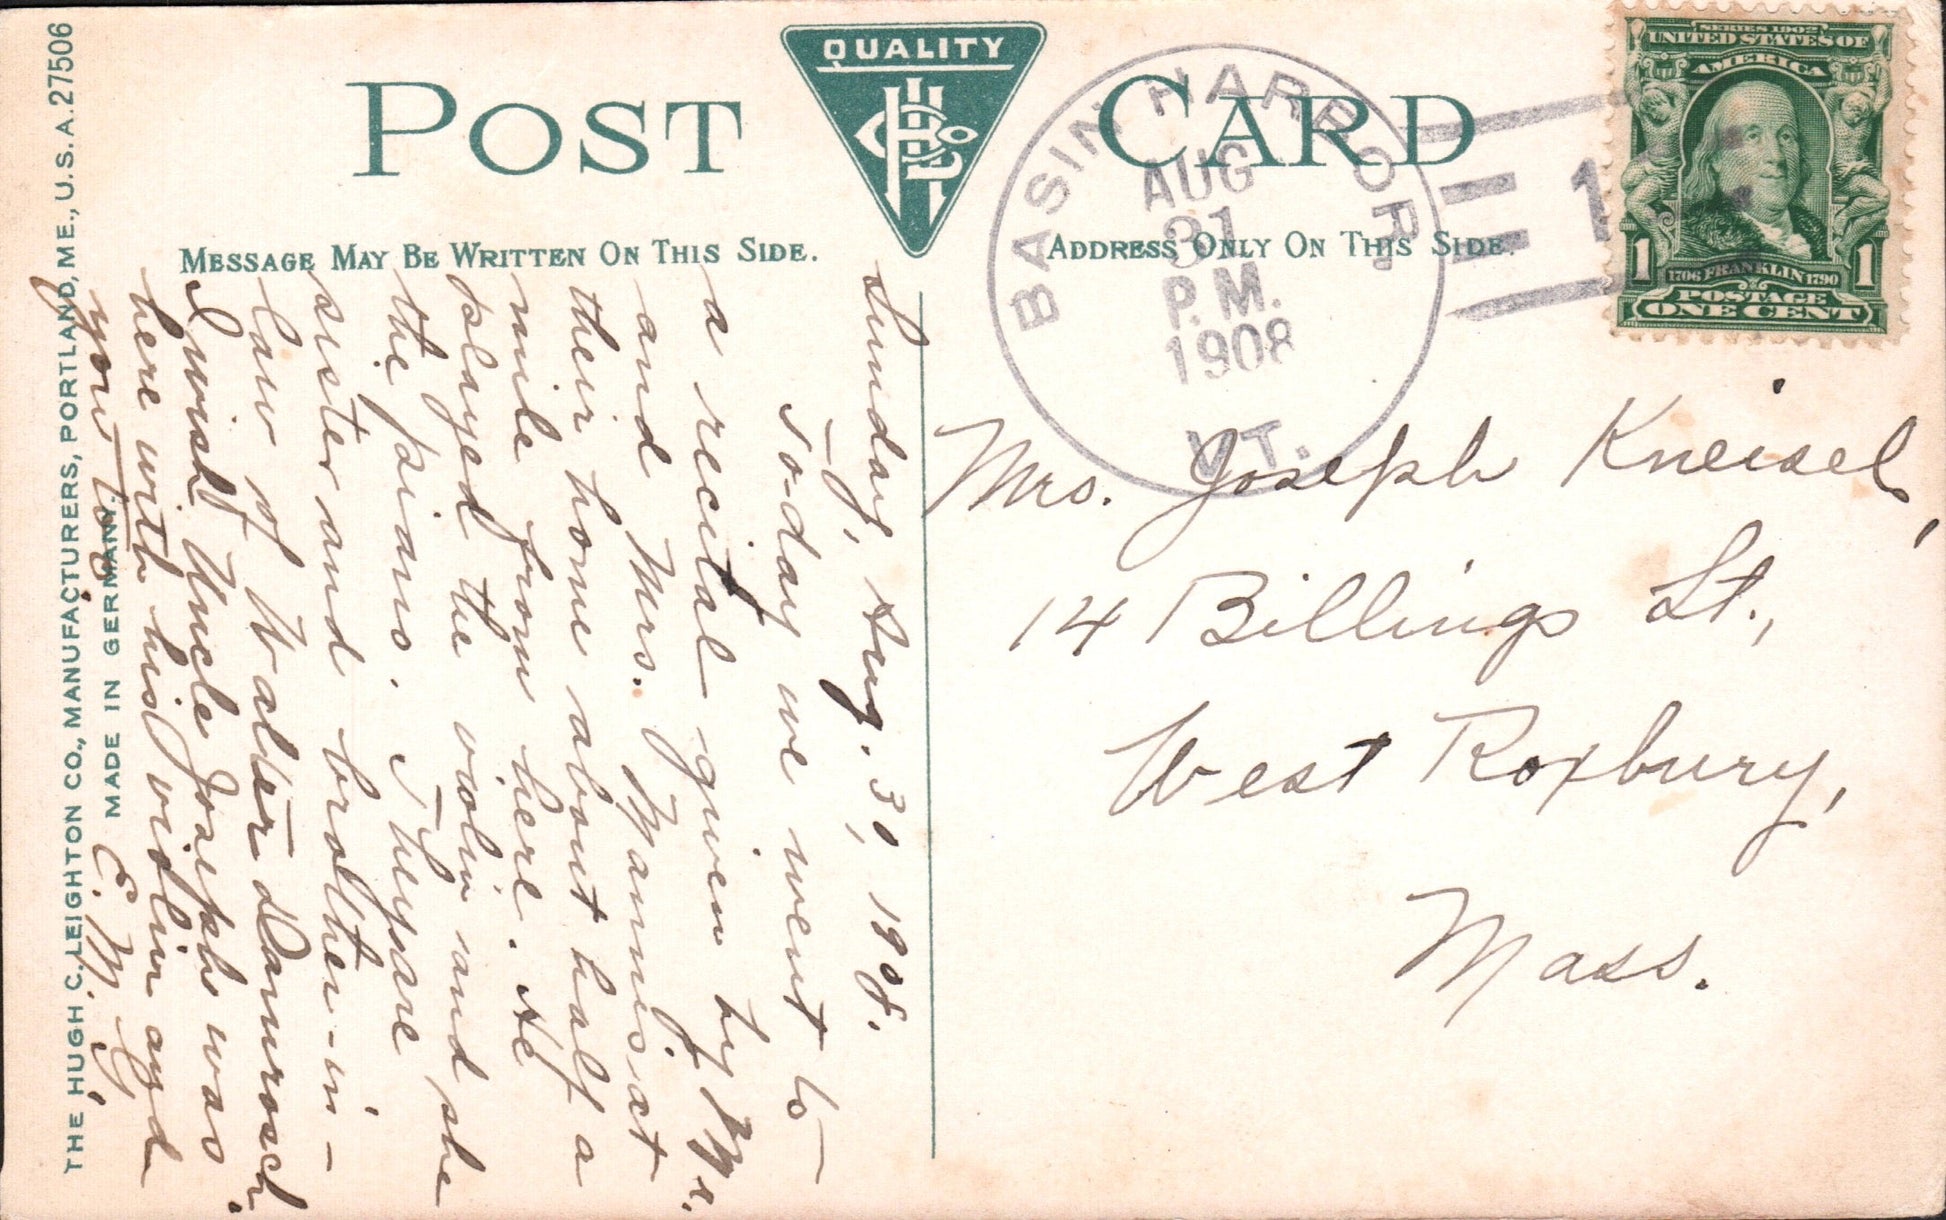 THE HUGH C. LEIGHTON CO., MANUFACTURERS, PORTLAND, ME., U.S.A. 27506
MADE IN GERMANY
POST CARD
QUALITY
MESSAGE MAY BE WRITTEN ON THIS SIDE.
ADDRESS ONLY ON THIS SIDE.
BASIN HARBOR.
AUG
31
P.M.
1908
VT.
1
SERIES 1902
UNITED STATES OF
AMERICA
1706 FRANKLIN 1790
1 1
POSTAGE
ONE CENT
Sunday, Aug. 30, 1908.
To-day we went to
a recital given by Mr.
and Mrs. Mannes at
their home about half a
mile from here. He
played the violin and she
the piano. They are
sister and brother-in-
law of Walter Damrosch.
I wish Uncle Joseph was
here with his violin and
you too.
E. M. G.
Mrs. Joseph Kneisel,
14 Billings St.,
West Roxbury,
Mass.